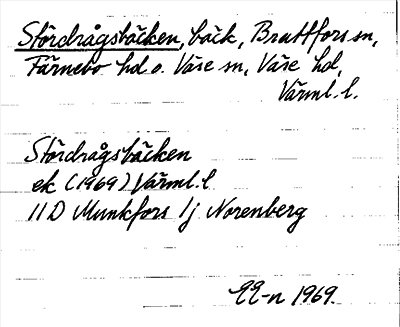 Stördrågsbäcken, bäck, Brattfors sn,
Färnebo hd o. Väse sn, Väse hd,
Värml. l.
Stördrågsbäcken
ek (1969) Värml. l
11D Munkfors 1j Norenberg
1969.